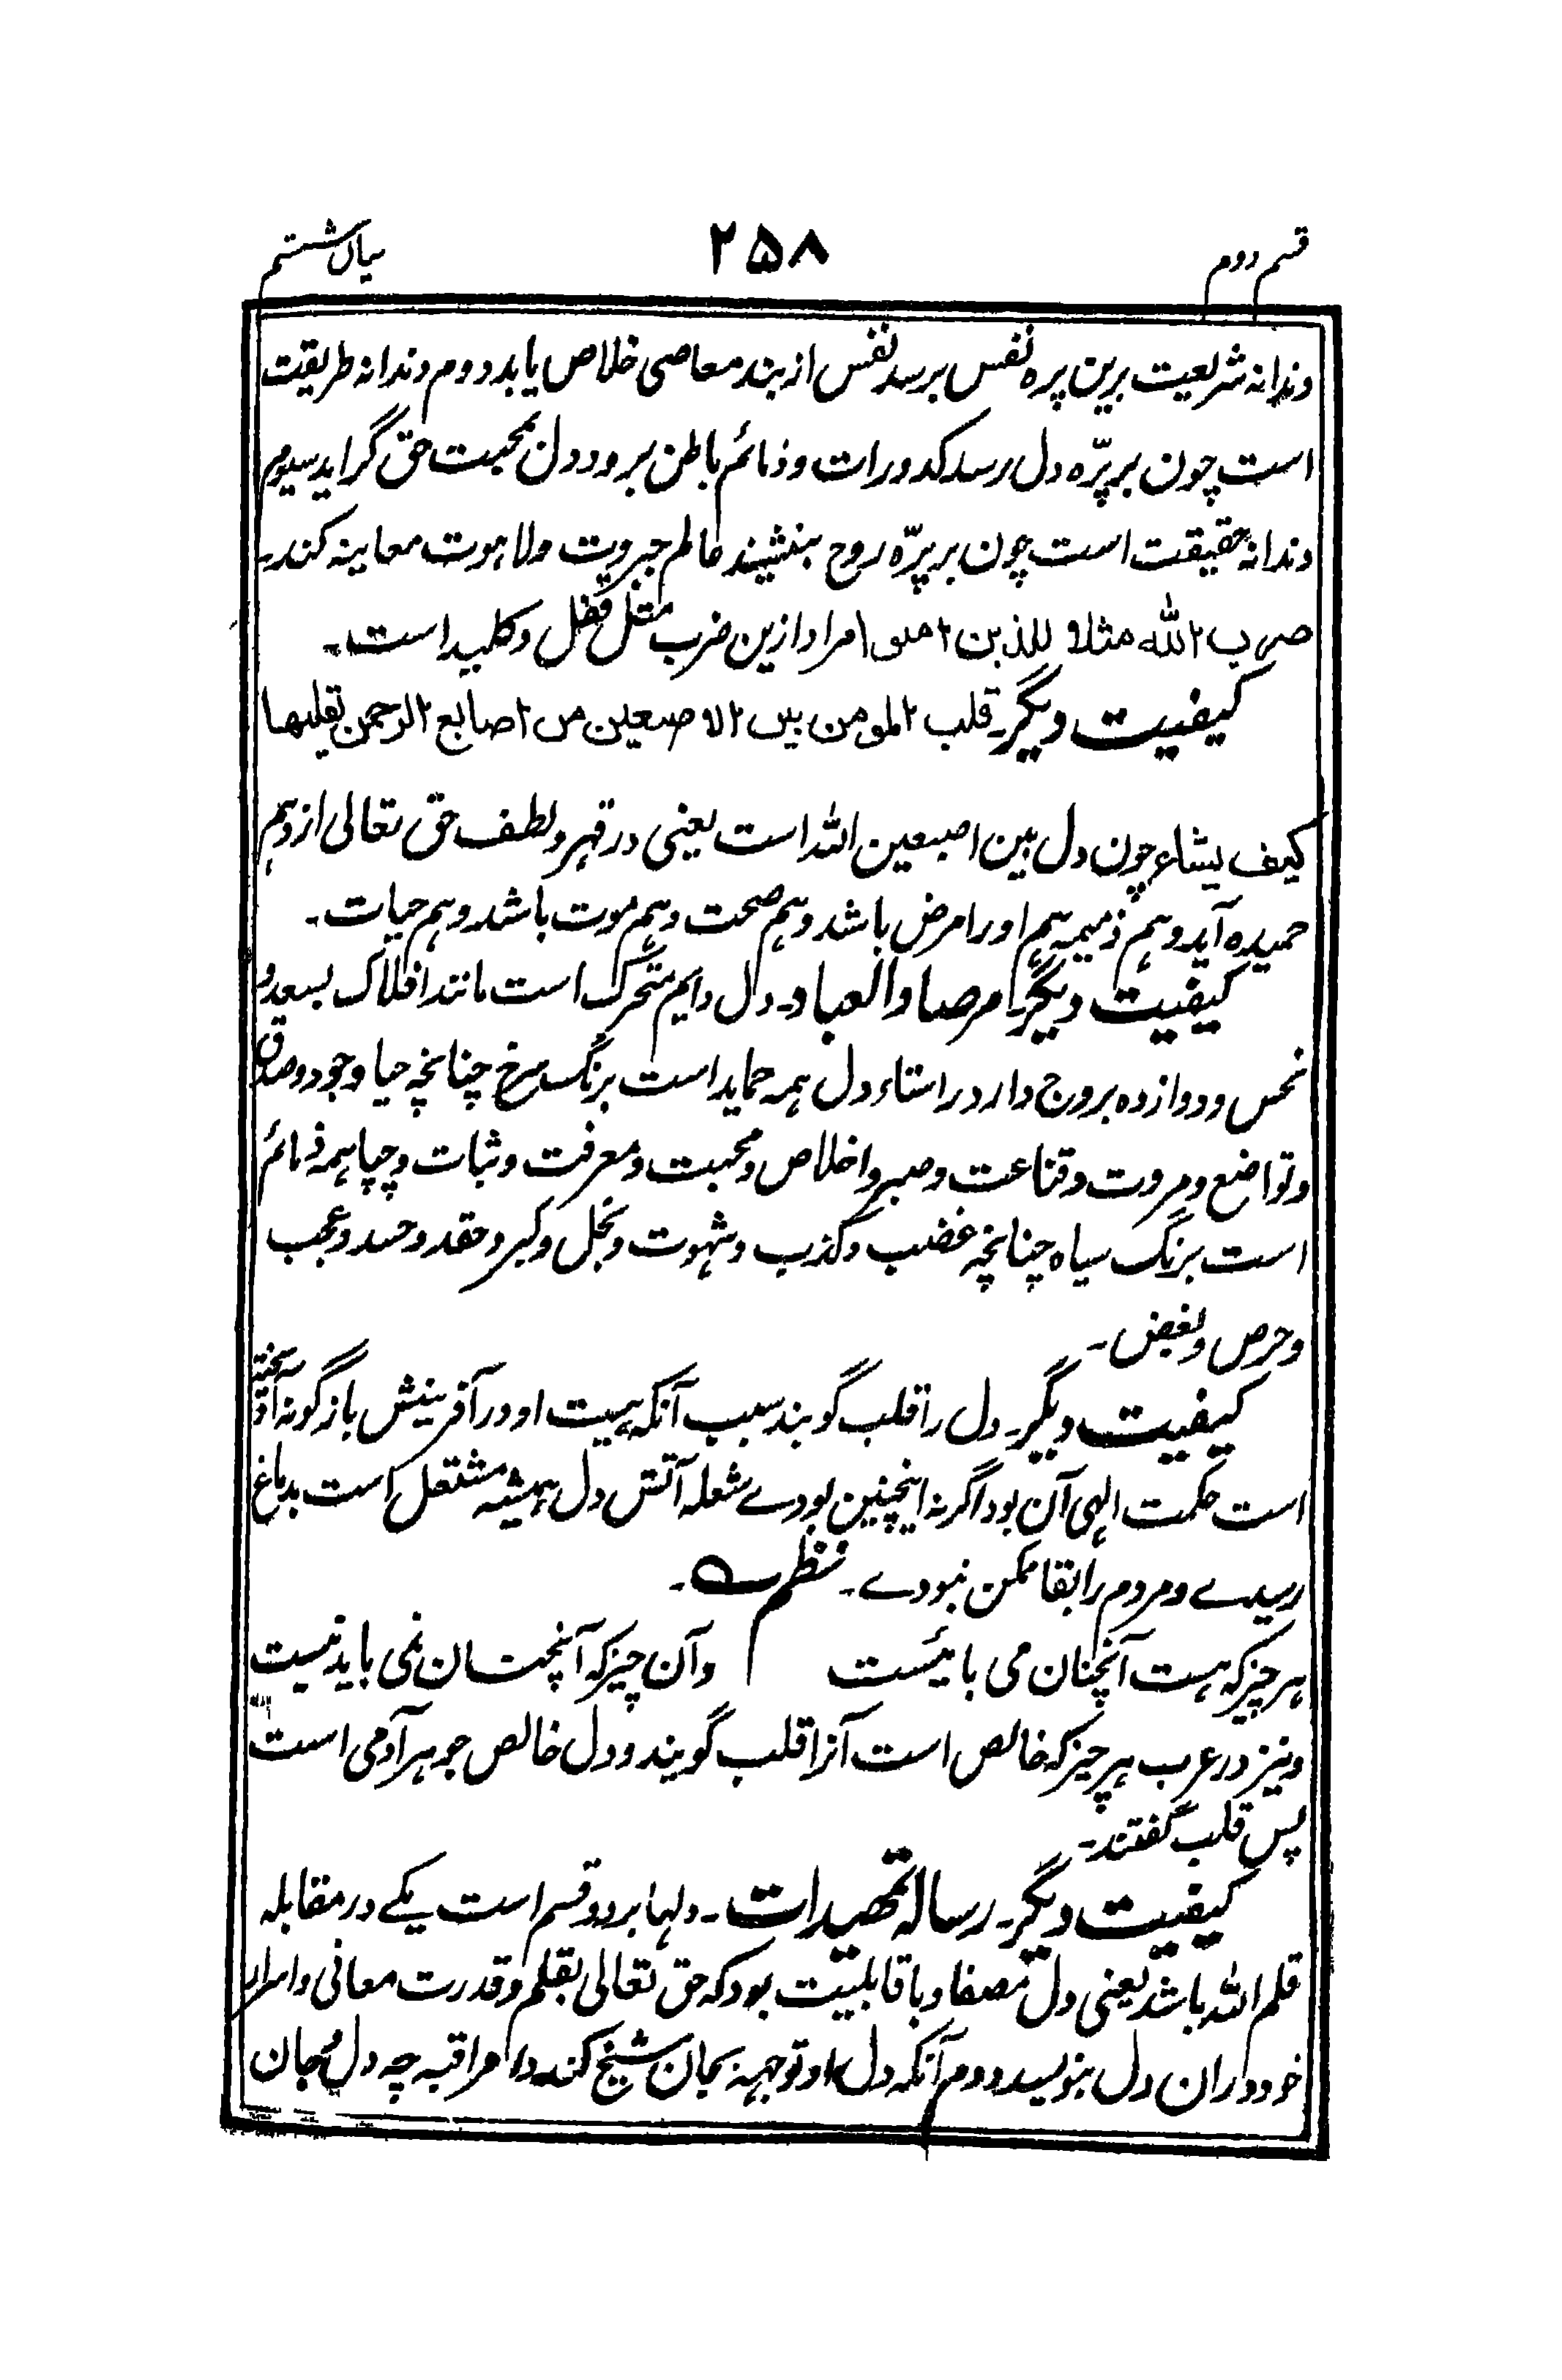 قسم دوم ۲۵۸ بیان ششم
دندانه شریعت برین پره نفس برسد نفس از بند معاصی خلاص یابد دوم دندانه طریقت
است چون بر پرّه دل رسد کدورات و ذمائم باطن برود دل بمحبت حق گراید سیوم
دندانه حقیقت است چون بر پرّه روح بنشیند عالم جبروت و لاهوت معاینه کند۔
ضرب الله مثلا للذین امنوا مراد ازین ضرب مثل قفل و کلید است۔
کیفیت دیگر۔ قلب المومن بین الاصبعین من اصابع الرحمن یقلبها
کیف یشاء چون دل بین اصبعین الله است یعنی در قهر و لطف حق تعالی ازو هم
حمیده آید و هم ذمیمه هم او را مرض باشد و هم صحت و هم موت باشد و هم حیات۔
کیفیت دیگر۔ مرصاد العباد۔ دل دایم متحرک است مانند افلاک بسعد و
نحس و دوازده بروج دارد راستاء دل همه حماید است برنگ سرخ چنانچه حیا و جود و صدق
و تواضع و مروت و قناعت و صبر و اخلاص و محبت و معرفت و ثبات و چپا همه ذمائم
است برنگ سیاه چنانچه غضب و کذب و شهوت و بخل و کبر و حقد و حسد و عجب
و حرص و بغض۔
کیفیت دیگر۔ دل را قلب گویند سبب آنکه هیت او در آفرینش بازگونه آویخته
است حکمت الهی آن بود اگر نه اینچنین بودے شعله آتش دل همیشه مشتعل است بدماغ
رسیدے و مردم را بقا ممکن نبودے۔ نظم۔
هر چیز که هست آنچنان می بایست وآن چیز که آنچنان نمی باید نیست
و نیز در عرب هر چیز که خالص است آنرا قلب گویند و دل خالص جوهر آدمی است
پس قلب گفتند۔
کیفیت دیگر۔ رساله تمهیدات۔ دلها بر دو قسم است یکے در مقابله
قلم الله باشد یعنی دل مصفا و با قابلیت بود که حق تعالی بقلم و قدرت معانی و اسرار
خود دران دل بنویسد دوم آنکه دل او توجهه بجان شیخ کند دا مراقبه چه دل و جان